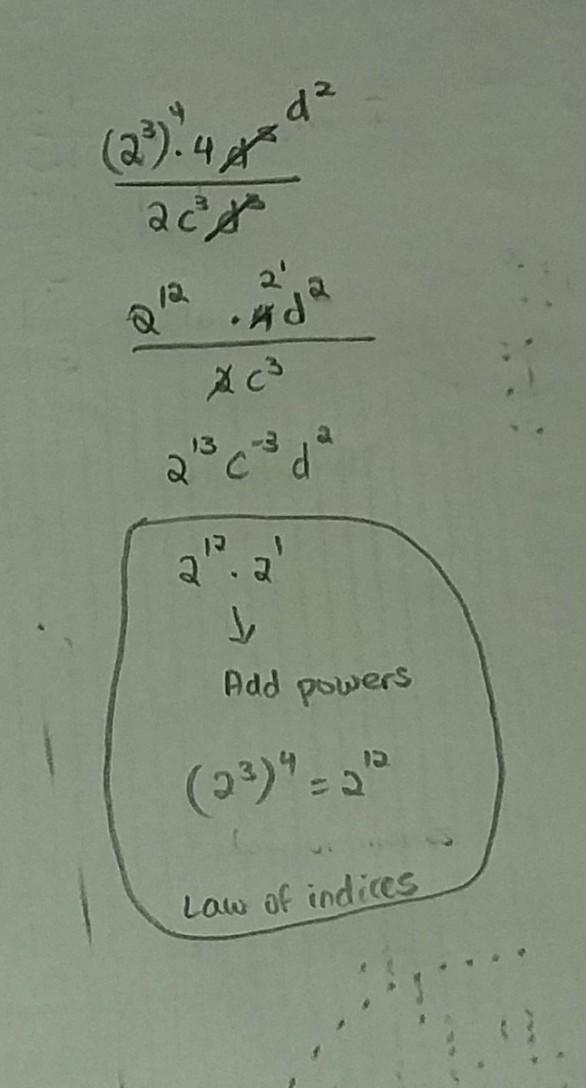 (2³)⁴ · 4 d² 
2c³
2¹² · 2¹ d²
c³
2¹³ c⁻³ d²
2¹² · 2¹
↓
Add powers
(2³)⁴ = 2¹²
Law of indices